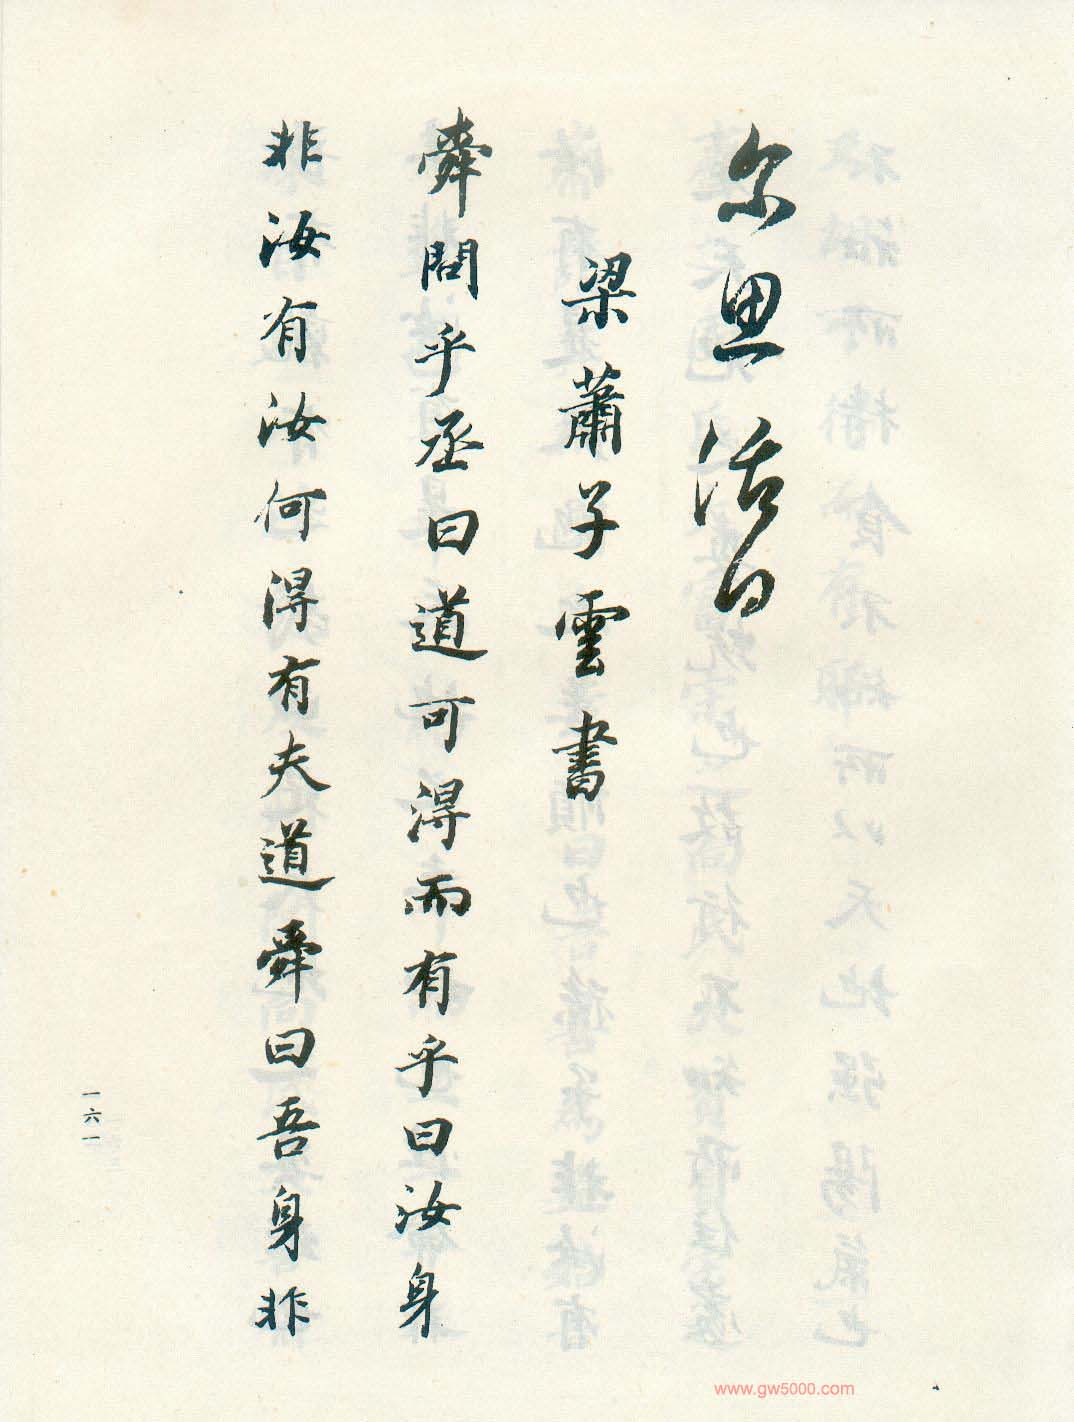 尔思
梁蕭子雲書
舜問乎丞曰道可得而有乎曰汝身
非汝有汝何得有夫道舜曰吾身非
一六一
www.gw5000.com